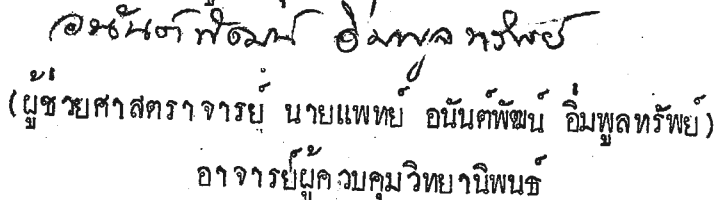 อนันต์พัฒน์ อิ่มพูลทรัพย์
(ผู้ช่วยศาสตราจารย์ นายแพทย์ อนันต์พัฒน์ อิ่มพูลทรัพย์)
อาจารย์ผู้ควบคุมวิทยานิพนธ์